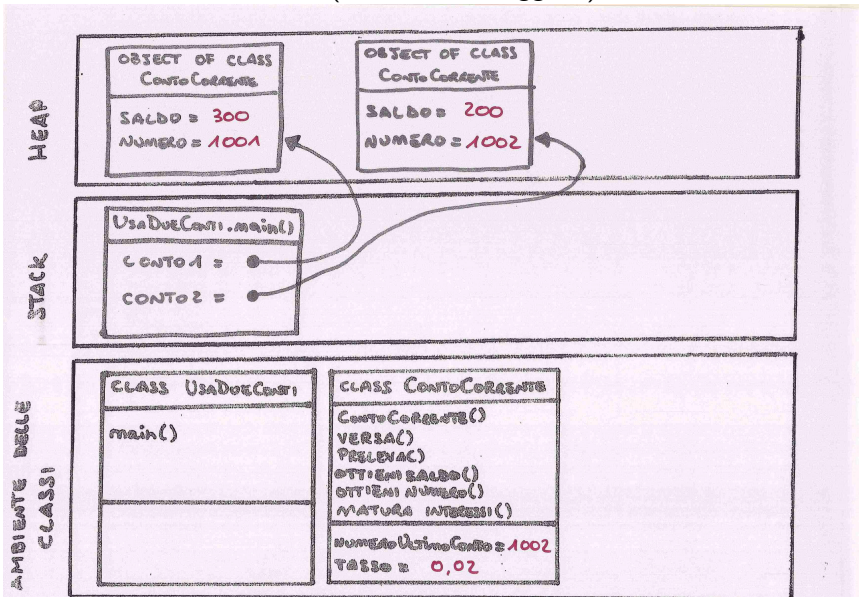 HEAP
OBJECT OF CLASS
ContoCorrente
SALDO = 300
NUMERO = 1001
OBJECT OF CLASS
ContoCorrente
SALDO = 200
NUMERO = 1002
STACK
UsaDueConti.main()
CONTO1 =
CONTO2 =
AMBIENTE DELLE
CLASSI
CLASS UsaDueConti
main()
CLASS ContoCorrente
ContoCorrente()
VERSA()
PRELEVA()
OTTIENI SALDO()
OTTIENI NUMERO()
MATURA INTERESSI()
NUMEROUltimoConto = 1002
TASSO = 0,02